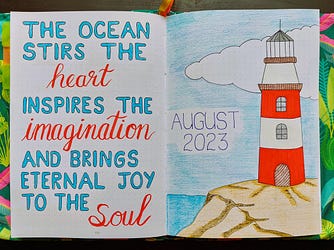 THE OCEAN
STIRS THE
heart
INSPIRES THE
imagination
AND BRINGS
ETERNAL JOY
TO THE
Soul
AUGUST
2023